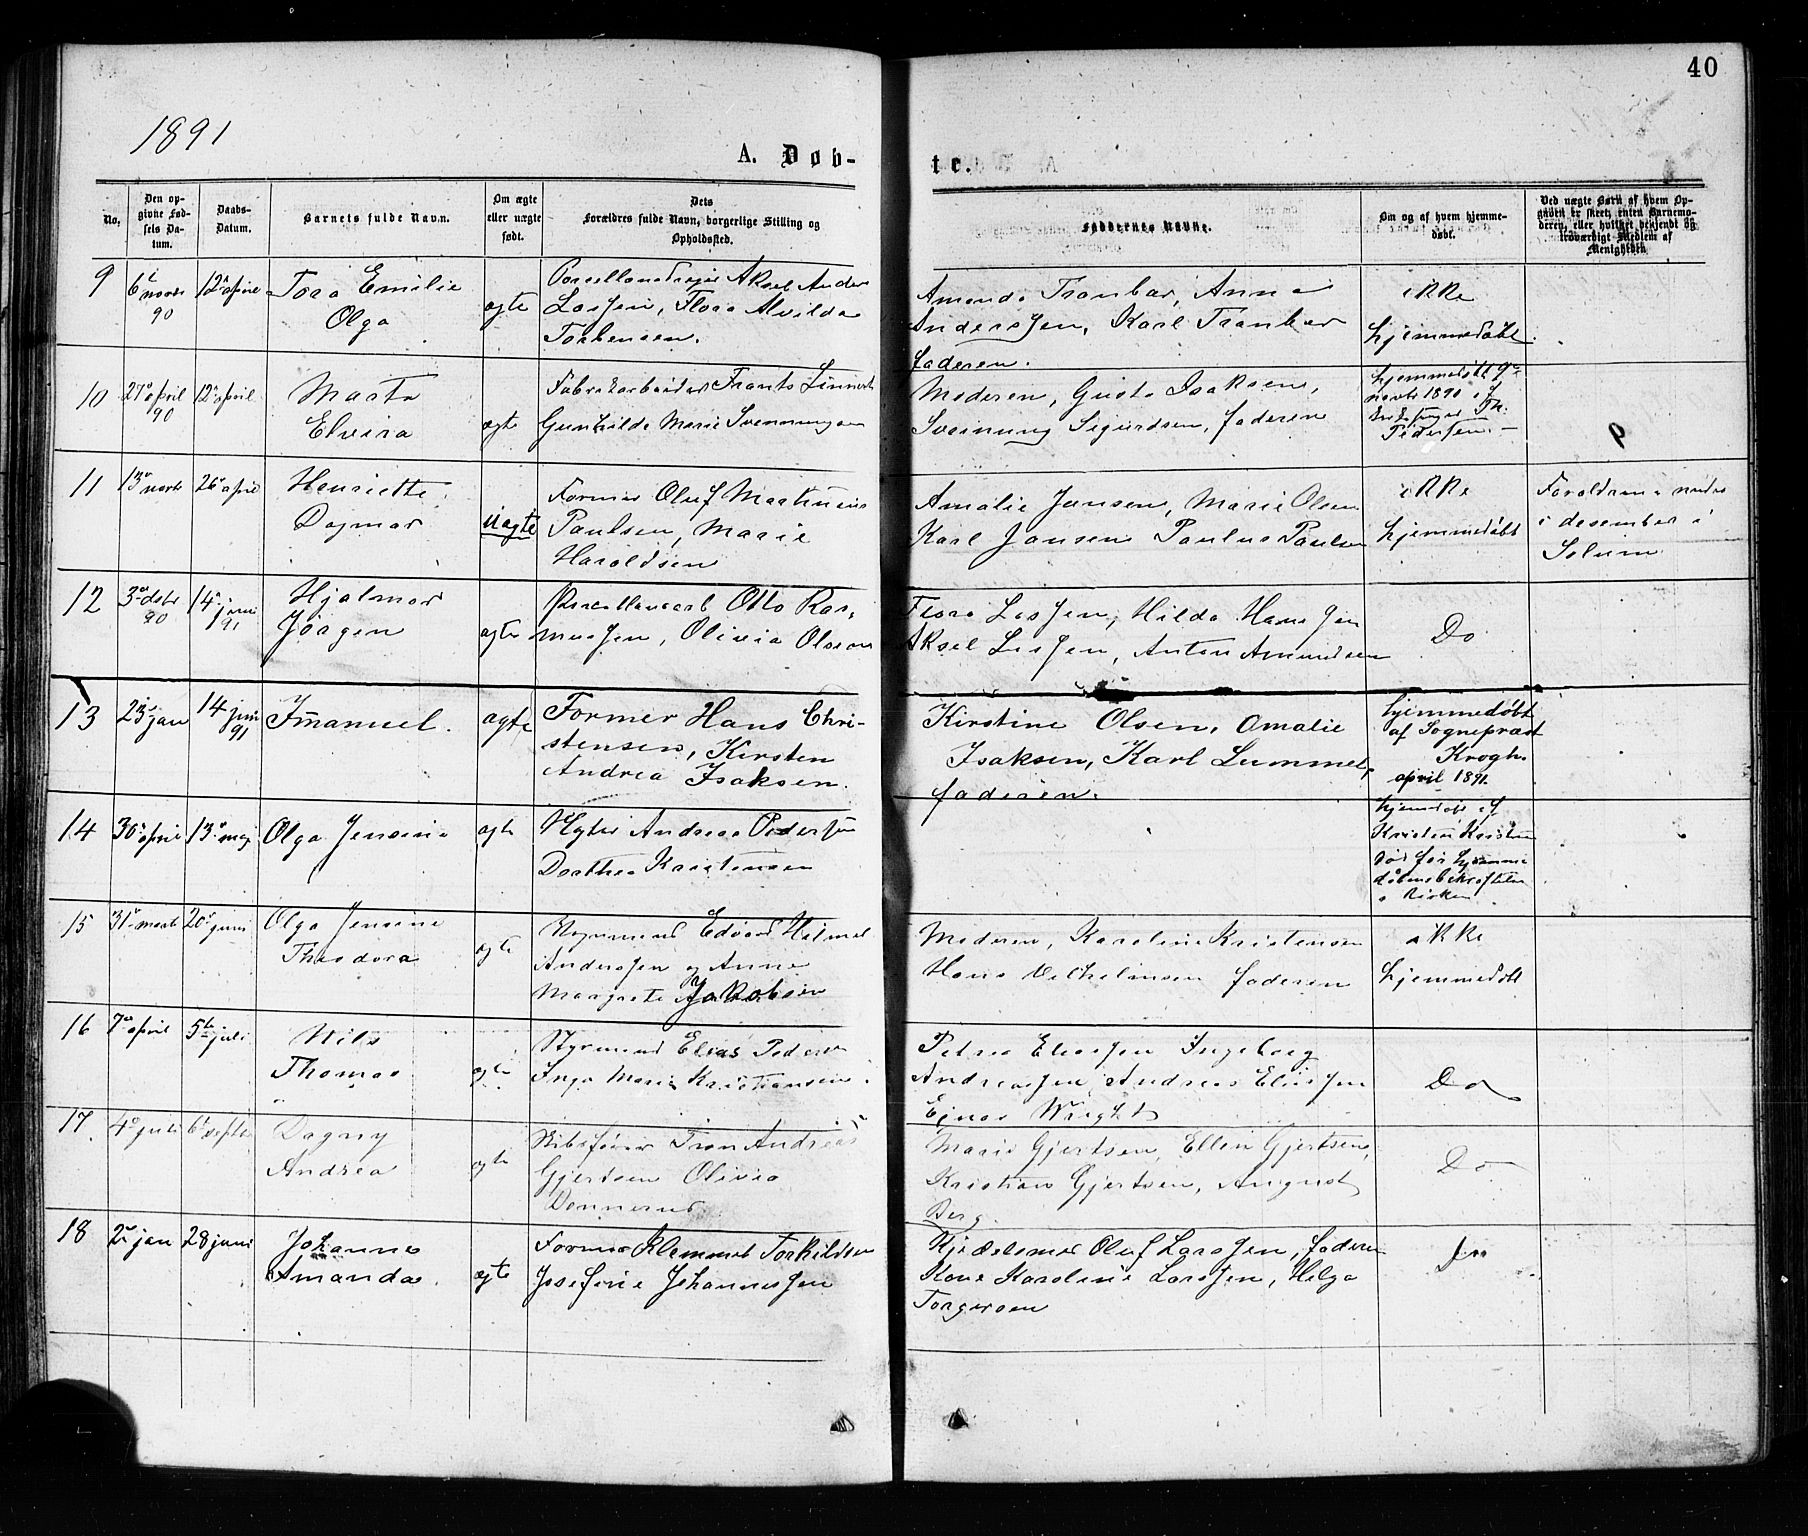 40
1891
A. Døb-
te.
No.
Den op-
givne Fød-
sels Da-
tum.
Daabs-
Datum.
Barnets fulde Navn.
Om ægte
eller uægte
født.
Dets
Forældres fulde Navn, borgerlige Stilling og
Opholdssted.
Faddernes Navne.
Om og af hvem hjemme-
døbt.
Ved uægte Børn af hvem Op-
gaven er skeet, enten Barnemo-
deren, eller hvilket bekjendt og
troværdigt Medlem af
Menigheden
9
6te novbr 90
12te april
Tora Emilie
Olga
ægte
Porcellandreier Aksel Anders
Lassen, Flora Alvilda
Torbensen.
Amanda Tranbar, Anna
Anderssen, Karl Tranbar
faderen.
ikke
hjemmedøbt.
10
27de april 90
12te april
Marta
Elvira
ægte
Fabrikarbeider Frants Linnert
Gunhilde Marie Svenningsen
Moderen, Gusta Isaksen,
Sveinung Sigurdsen, faderen
hjemmedøbt 9de
novbr 1890 af
Th.
Pedersen
11
13de novbr
26de april
Henriette
Dagmar
uægte
Former Oluf Mathinius
Paulsen, Marie
Haroldsen
Amalie Jansen, Marie Olsen
Karl Jansen Paulus Paulsen
ikke
hjemmedøbt
Forældrene
i desember i
Solum
12
3de dsbr 90
14de juni 91
Hjalmar
Jørgen
ægte
Porcellanarb Otto Ras-
mussen, Olivia Olsson
Flora Lassen, Hilda Hanssen
Aksel Lassen, Anton Amundsen
Do
13
23de jan
14 juni 91
Imanuel.
ægte
Former Hans Chri-
stensen, Kirsten
Andrea Isaksen.
Kirstine Olsen, Amalie
Isaksen, Karl Lummel,
faderen.
hjemmedøbt
af Sognepræst
Krogh.
april 1891.
14
30te april
13de maj
Olga Jensine
ægte
Andreas Pedersen
Dorthea Kristensen
hjemdøbt af
Kristen Karsten
død før hjemme
dåbens bekræftelse
i kirken
15
31te marts
20de juni
Olga Jensine
Theodora
ægte
Styrmand Edvard Hilmal
Anderssen og Anne
Margrete Jakobsen
Moderen, Karoline Kristensen
Hans Vilhelmsen faderen
ikke
hjemmedøbt
16
7de april
5te juli
Nils
Thomas
ægte
Styrmand Elias Peders
Inga Marie Kristiansen
Petrea Eliassen Ingeborg
Andreassen Andreas Eliassen
Ejnar Wright
Do
17
4de juli
6te septbr
Dagny
Andrea
ægte
Skibsfører Tron Andreas
Gjertsen Olivia
Dennerud
Marie Gjertsen, Ellen Gjertsen,
Kristian Gjertsen, August
Berg.
Do
18
2de jan
28 juni
Johanne
Amanda.
ægte
Former Klemmet Torkildsen
Josefine Johannessen
Kjedelsmed Oluf Larssen, faderen
Kone Karoline Larssen, Helga
Torgersen
Do